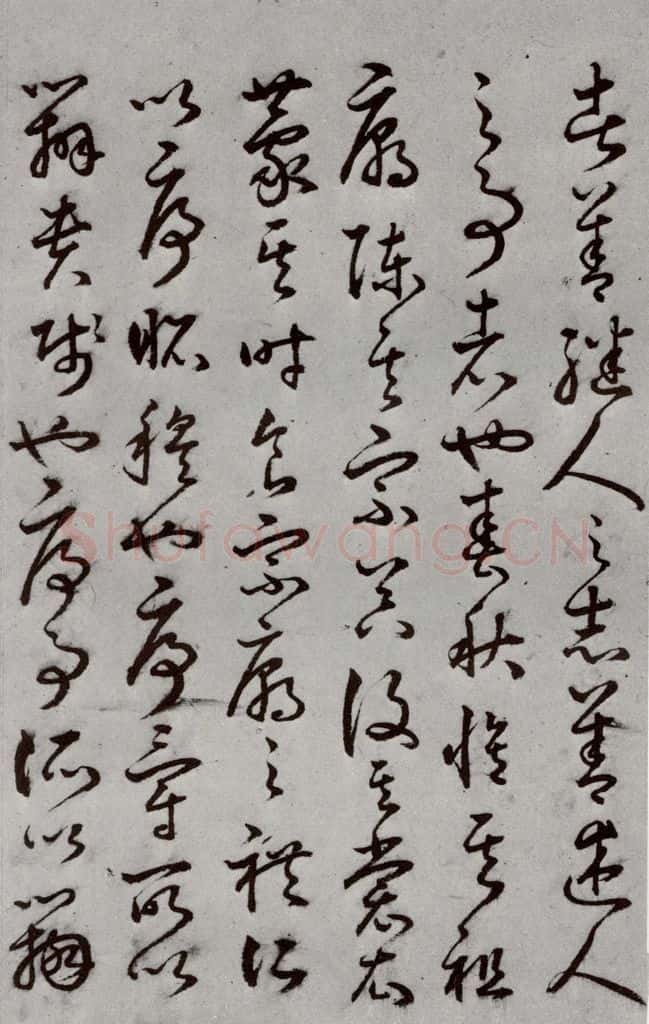 者善繼人之志善述人
之事者也春秋脩其祖
廟陳其宗器設其裳衣
薦其時食宗廟之禮所
以序昭穆也序爵所以
辨貴賤也序事所以辨
Shufawang.CN